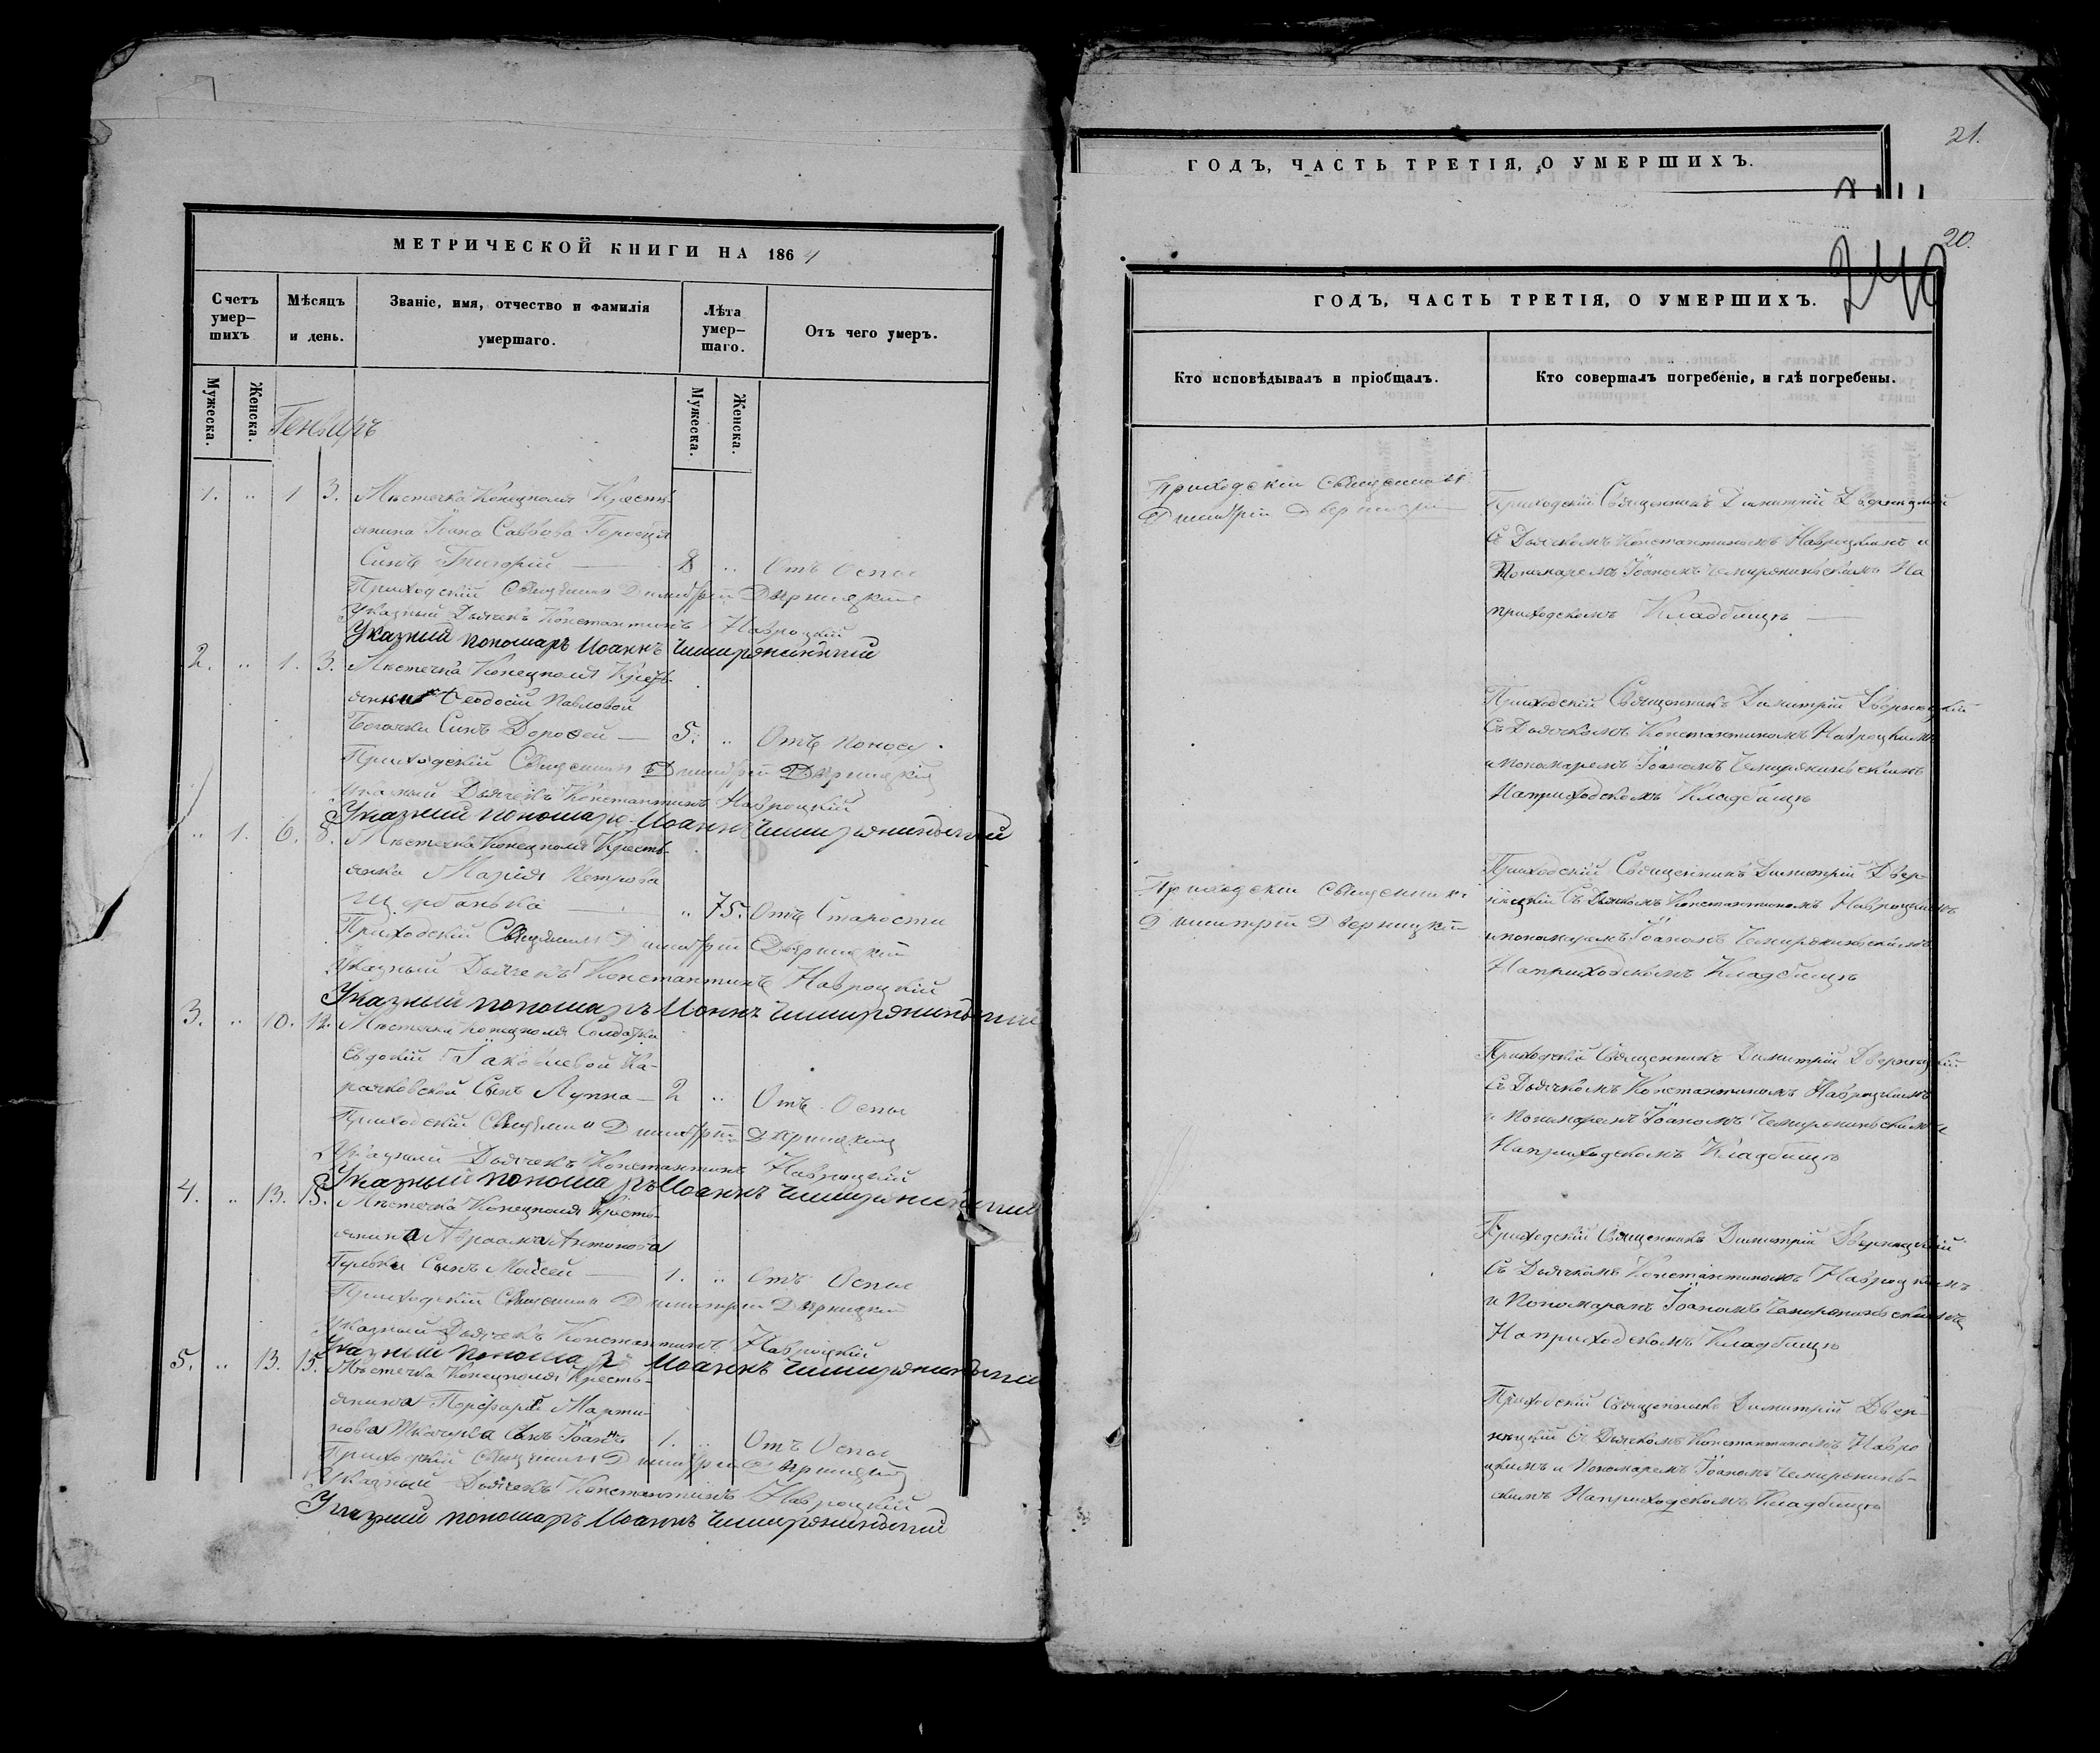 МЕТРИЧЕСКОЙ КНИГИ НА 1864
Счетъ умер-шихъ
Мѣсяцъ и день.
Званіе, имя, отчество и фамилія умершаго.
Лѣта умер-шаго.
Отъ чего умеръ.
Мужеска.
Женска.
Мужеска.
Женска.
Генварь
1. „ 1 3. Мѣстечка Конецполя Кресть-
янина Савова
Сынъ Григорій — 8 „ Отъ Оспы
Приходскій Священникъ Димитрій Дверницкій
Указный Дьячекъ Константинъ Навроцкій
Указный пономаръ Иоаннъ
2. „ 1. 3. Мѣстечка Конецполя Кресть-
янки Ѳеодосіи Павловой
Сынъ Дороѳей — 5. „ Отъ поносу.
Приходскій Священникъ Димитрій Дверницкій
Указный Дьячекъ Константинъ Навроцкій
Указный пономаръ Иоаннъ
„ 1. 6. 8. Мѣстечка Конецполя Кресть-
янка Марія Петрова
— „ 75. Отъ Старости
Приходскій Священникъ Димитрій Дверницкій
Указный Дьячекъ Константинъ Навроцкій
Указный пономаръ Иоаннъ
3. „ 10. 12. Мѣстечка Конецполя Солдатки
Евдокіи Іаковлевой Ка-
рачковской Сынъ Луппа — 2 „ Отъ Оспы
Приходскій Священникъ Димитрій Дверницкій
Указный Дьячекъ Константинъ Навроцкій
Указный пономаръ Иоаннъ
4. „ 13. 15. Мѣстечка Конецполя Кресть-
янина Авраама Антонова
Гульки Сынъ Моисей — 1. „ Отъ Оспы
Приходскій Священникъ Димитрій Дверницкій
Указный Дьячекъ Константинъ Навроцкій
Указный пономаръ Иоаннъ
5. „ 13. 15. Мѣстечка Конецполя Кресть-
янина Порфирія Марти-
нова Сынъ Іоаннъ 1. „ Отъ Оспы
Приходскій Священникъ Димитрій Дверницкій
Указный Дьячекъ Константинъ Навроцкій
Указный пономаръ Иоаннъ
21.
ГОДЪ, ЧАСТЬ ТРЕТІЯ, О УМЕРШИХЪ.
20.
240
ГОДЪ, ЧАСТЬ ТРЕТІЯ, О УМЕРШИХЪ.
Кто исповѣдывалъ и пріобщалъ.
Кто совершалъ погребеніе, и гдѣ погребены.
Приходскій Священникъ
Димитрій Дверницкій
Приходскій Священникъ Димитрій Дверницкій
Съ Дьячкомъ Константиномъ Навроцкимъ и
Пономаремъ Іоаномъ На
приходскомъ Кладбищѣ —
Приходскій Священникъ Димитрій Дверницкій
Съ Дьячкомъ Константиномъ Навроцкимъ
и пономаремъ Іоаномъ
На приходскомъ Кладбищѣ
Приходскій Священникъ
Димитрій Дверницкій
Приходскій Священникъ Димитрій Двер-
ницкій Съ Дьячкомъ Константиномъ Навроцкимъ
и пономаремъ Іоаномъ
На приходскомъ Кладбищѣ
Приходскій Священникъ Димитрій Дверницкій
Съ Дьячкомъ Константиномъ Навроцкимъ
и Пономаремъ Іоаномъ
На приходскомъ Кладбищѣ
Приходскій Священникъ Димитрій Дверницкій
Съ Дьячкомъ Константиномъ Навроцкимъ
и Пономаремъ Іоаномъ
На приходскомъ Кладбищѣ
Приходскій Священникъ Димитрій Двер-
ницкій Съ Дьячкомъ Константиномъ Навро
цкимъ и Пономаремъ Іоаномъ
На приходскомъ Кладбищѣ